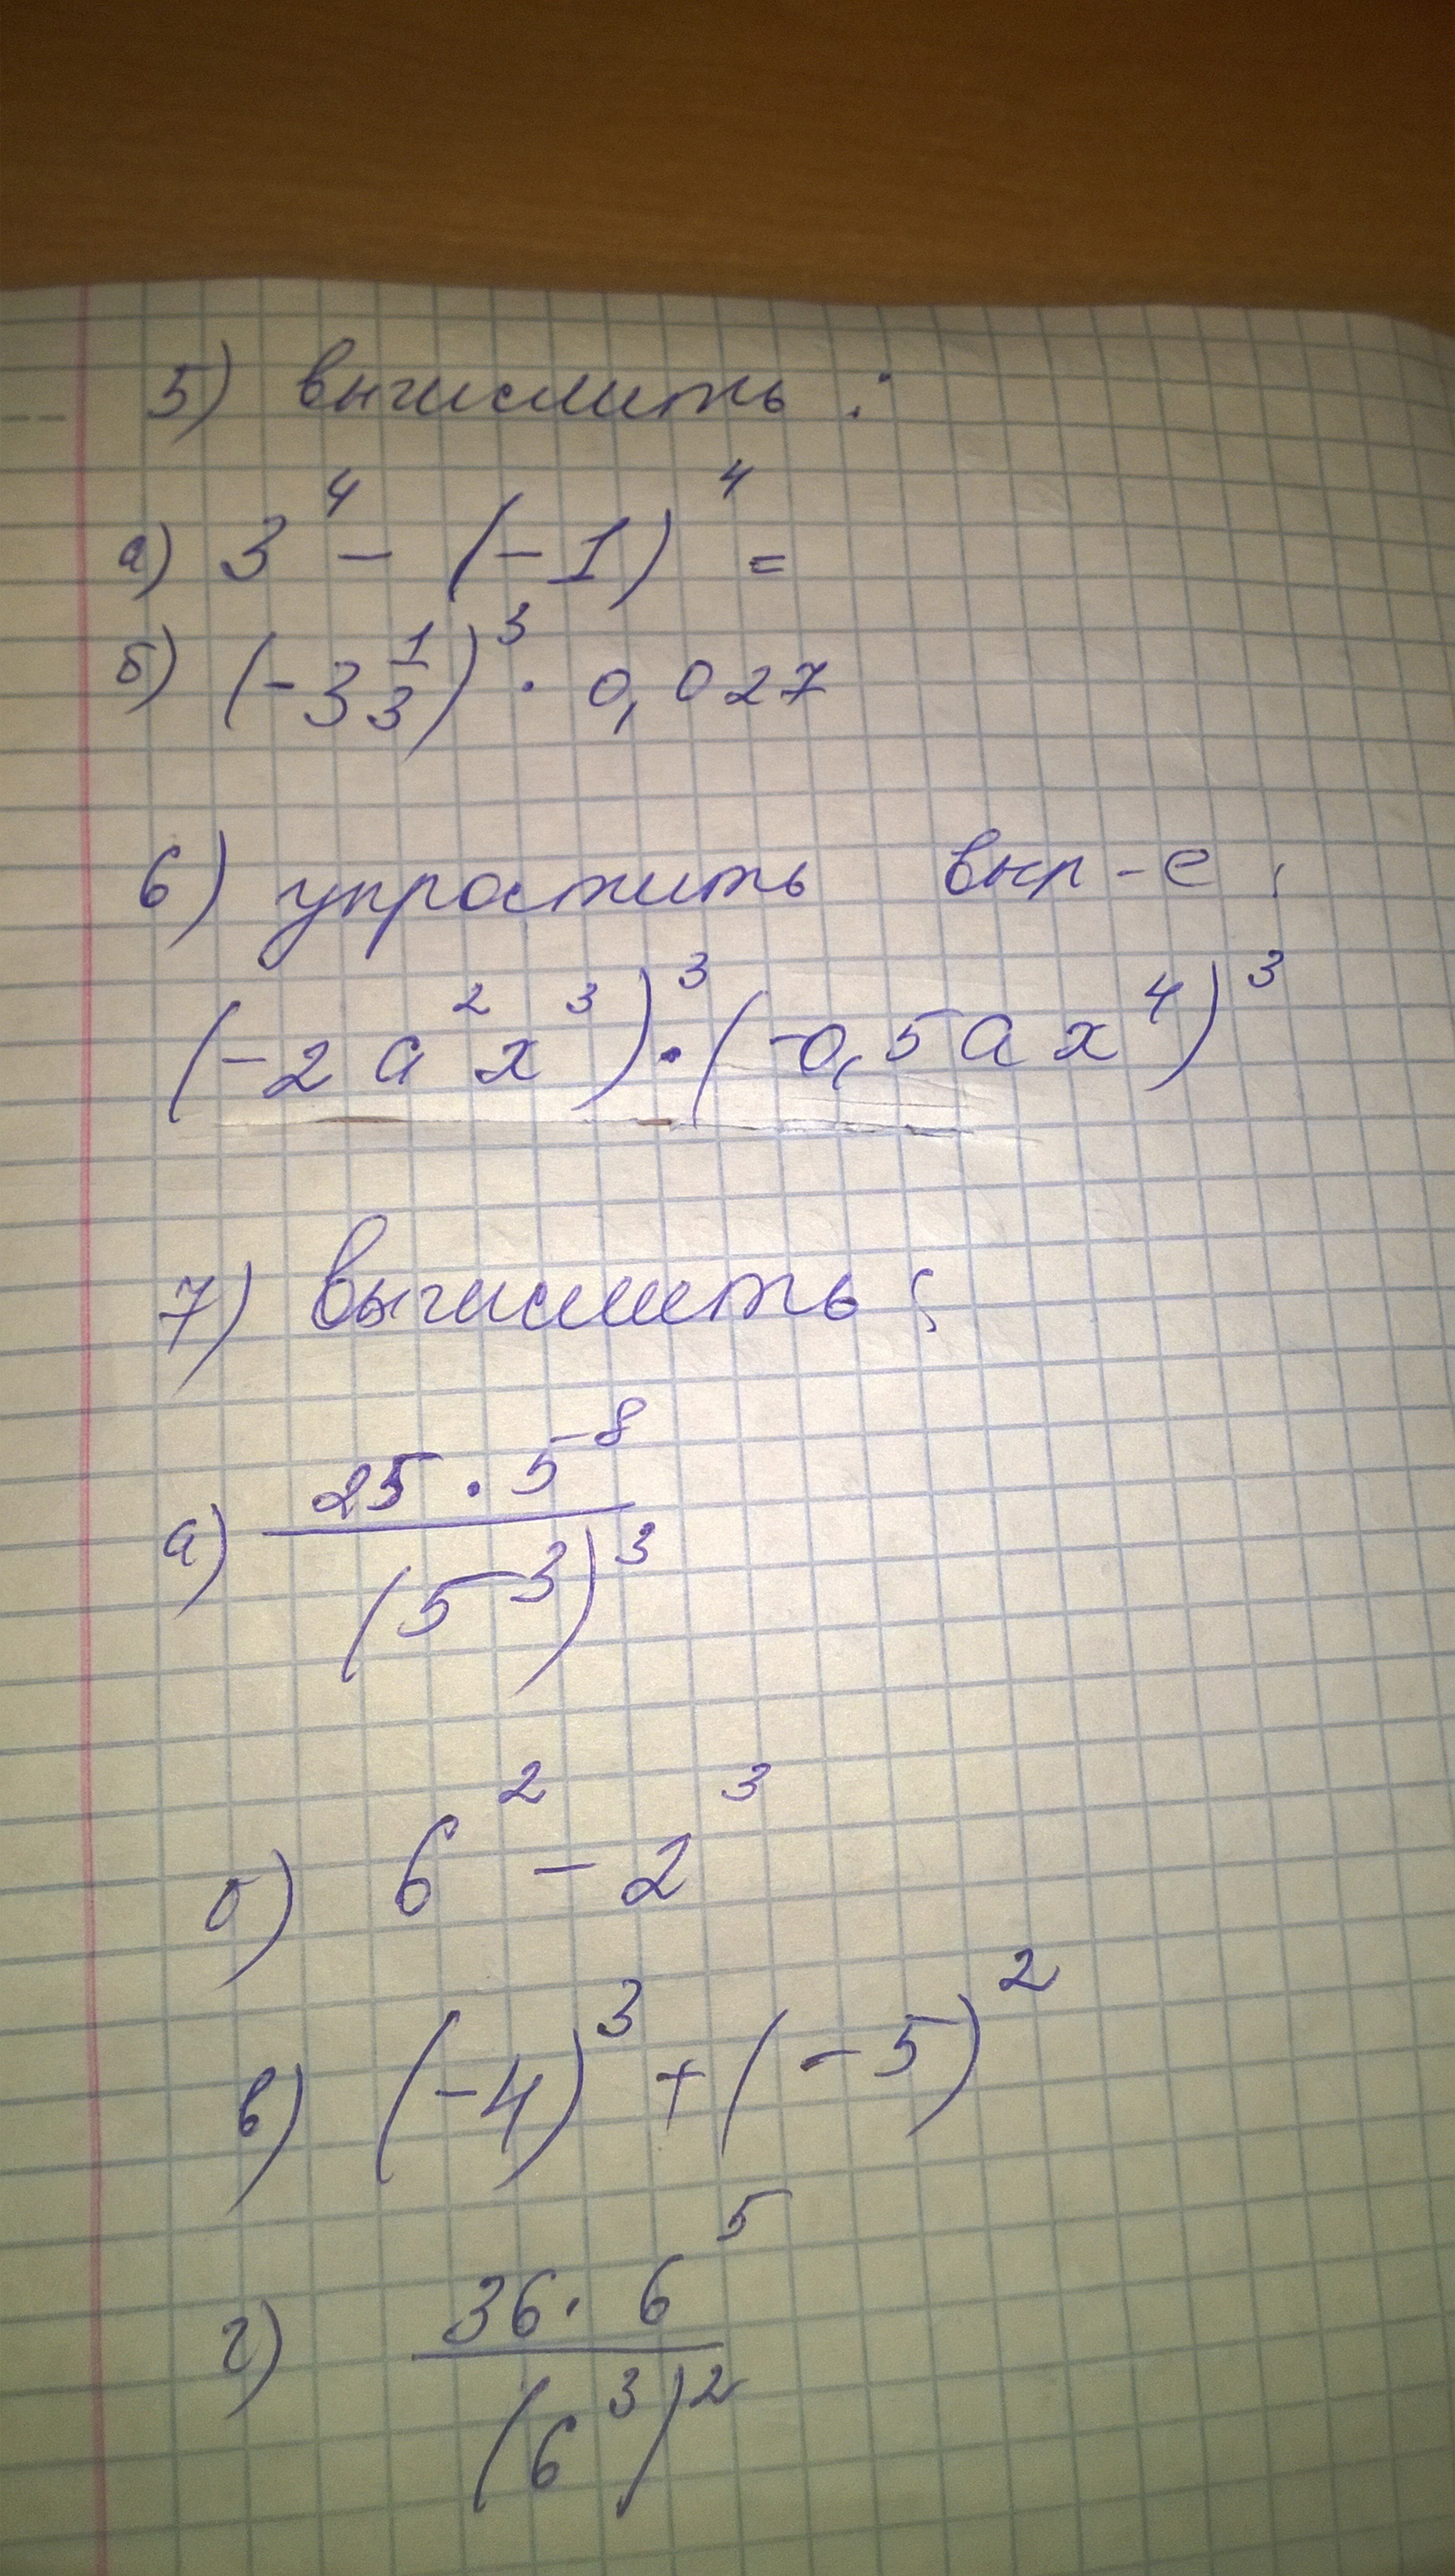 5) вычислить:
а) 3⁴ - (-1)⁴ =
б) (-3 1/3)³ · 0,027
6) упростить выр-е:
(-2a²x³)³ · (-0,5ax⁴)³
7) вычислить:
а) (25 · 5⁸)/(5³)³
б) 6² - 2³
в) (-4)³ + (-5)²
г) (36 · 6⁵)/(6³)²